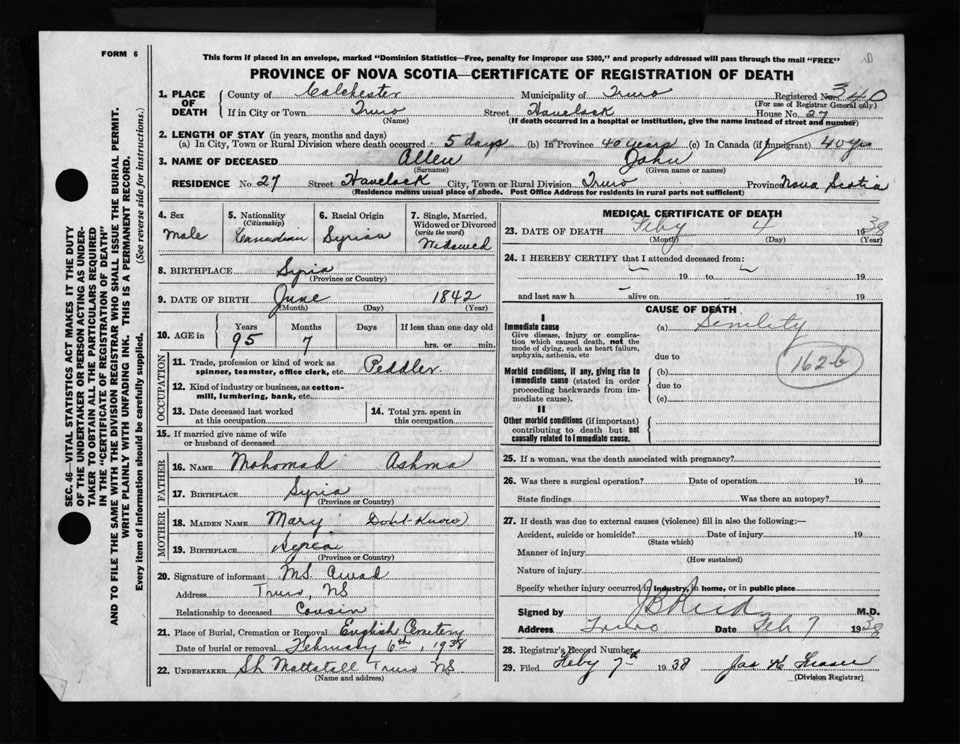 FORM 6
This form if placed in an envelope, marked "Dominion Statistics—Free, penalty for improper use $300," and properly addressed will pass through the mail "FREE"
PROVINCE OF NOVA SCOTIA—CERTIFICATE OF REGISTRATION OF DEATH
SEC. 46—VITAL STATISTICS ACT MAKES IT THE DUTY
OF THE UNDERTAKER OR PERSON ACTING AS UNDER-
TAKER TO OBTAIN ALL THE PARTICULARS REQUIRED
IN THE "CERTIFICATE OF REGISTRATION OF DEATH"
AND TO FILE THE SAME WITH THE DIVISION REGISTRAR WHO SHALL ISSUE THE BURIAL PERMIT.
WRITE PLAINLY WITH UNFADING INK. THIS IS A PERMANENT RECORD.
Every item of information should be carefully supplied. (See reverse side for instructions.)
1. PLACE OF DEATH County of Colchester Municipality of Truro Registered No. 340
(For use of Registrar General only)
If in City or Town Truro Street Havelock House No. 27
(Name) (If death occurred in a hospital or institution, give the name instead of street and number)
2. LENGTH OF STAY (in years, months and days)
(a) In City, Town or Rural Division where death occurred 5 days (b) In Province 40 years (c) In Canada (if immigrant) 40 yrs
3. NAME OF DECEASED Allen John
(Surname) (Given name or names)
RESIDENCE No. 27 Street Havelock City, Town or Rural Division Truro Province Nova Scotia
(Residence means usual place of abode. Post Office Address for residents in rural parts not sufficient)
4. Sex Male
5. Nationality (Citizenship) Canadian
6. Racial Origin Syrian
7. Single, Married, Widowed or Divorced (write the word) Widowed
8. BIRTHPLACE Syria
(Province or Country)
9. DATE OF BIRTH June 1842
(Month) (Day) (Year)
10. AGE in Years 95 Months 7 Days If less than one day old
hrs. or min.
OCCUPATION
11. Trade, profession or kind of work as spinner, teamster, office clerk, etc. Peddler
12. Kind of industry or business, as cotton-mill, lumbering, bank, etc.
13. Date deceased last worked at this occupation
14. Total yrs. spent in this occupation
15. If married give name of wife or husband of deceased
FATHER
16. NAME Mohomad Ashma
17. BIRTHPLACE Syria
(Province or Country)
MOTHER
18. MAIDEN NAME Mary Dont Know
19. BIRTHPLACE Syria
(Province or Country)
20. Signature of informant MS. Awad
Address Truro, NS
Relationship to deceased Cousin
21. Place of Burial, Cremation or Removal English Cemetery
Date of burial or removal February 6th, 1938
22. UNDERTAKER SH Mattatall Truro NS
(Name and address)
MEDICAL CERTIFICATE OF DEATH
23. DATE OF DEATH Feby 4 1938
(Month) (Day) (Year)
24. I HEREBY CERTIFY that I attended deceased from:
— 19 to — 19
and last saw h — alive on — 19
CAUSE OF DEATH
I
Immediate cause
Give disease, injury or complication which caused death, not the mode of dying, such as heart failure, asphyxia, asthenia, etc
(a) Senility
due to
162-b
Morbid conditions, if any, giving rise to immediate cause (stated in order proceeding backwards from immediate cause).
(b)
due to
(c)
II
Other morbid conditions (if important) contributing to death but not causally related to immediate cause.
25. If a woman, was the death associated with pregnancy?
26. Was there a surgical operation? Date of operation 19
State findings Was there an autopsy?
27. If death was due to external causes (violence) fill in also the following:—
Accident, suicide or homicide? Date of injury 19
(State which)
Manner of injury
(How sustained)
Nature of injury
Specify whether injury occurred in industry, in home, or in public place
Signed by JB Reid M.D.
Address Truro Date Feb 7 1938
28. Registrar's Record Number
29. Filed Feby 7th 1938 Jas H Fraser
(Division Registrar)